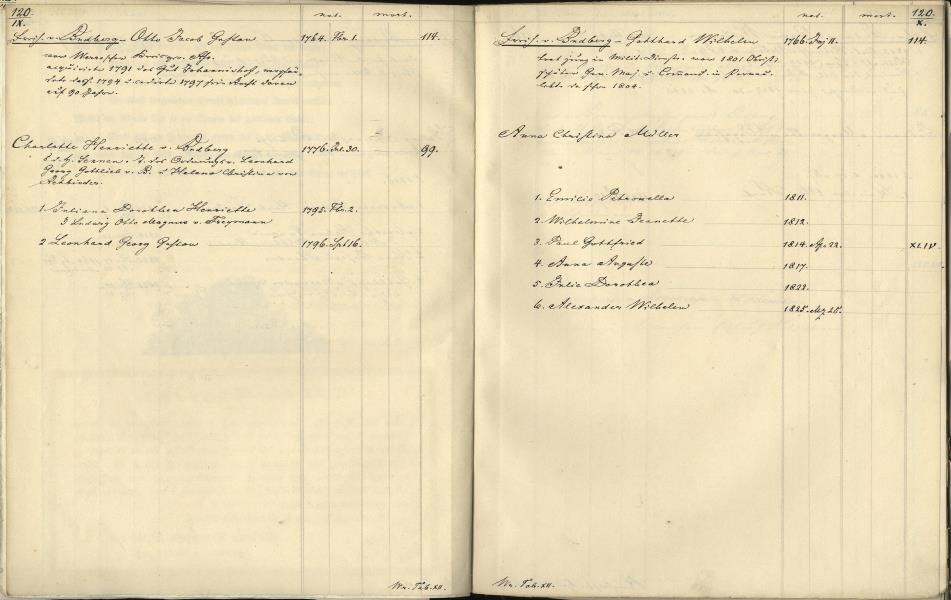 120.
IX.
nat. mort.
v. Budberg – Otto Jacob Gustav 1764. Fbr. 1. 114.
war
acquirirte 1791 das Gut Johannishof,
1794 u. cedirte 1797 sein Recht daran
auf 90 Jahre.
Charlotte Henriette v. Budberg 1776. Jul. 30. 99.
v. Leonhard
Georg Gottlieb v. B. u Helena Christina von
1. Juliana Dorothea Henriette 1795. Fbr. 2.
Ludwig Otto Magnus v. Freymann
2 Leonhard Georg Gustav 1796. Spt 16.
Wn. Tab. XII.
120.
X.
nat. mort.
v. Budberg – Gotthard Wilhelm 1766. 11. 114.
trat jung in Milit. Dienste, war 1801 Obrist
später Gen. Maj. u. Command. in Pernau.
lebte da schon 1804.
Anna Christina Müller
1. Emilie Petronella 1811.
2. Wilhelmine Jeanette 1812.
3. Paul Gottfried 1814. Ap. 22. XLIV
4. Anna Auguste 1817.
5. Julie Dorothea 1822.
6. Alexander Wilhelm 1825. Mz 25.
Wn. Tab. XII.